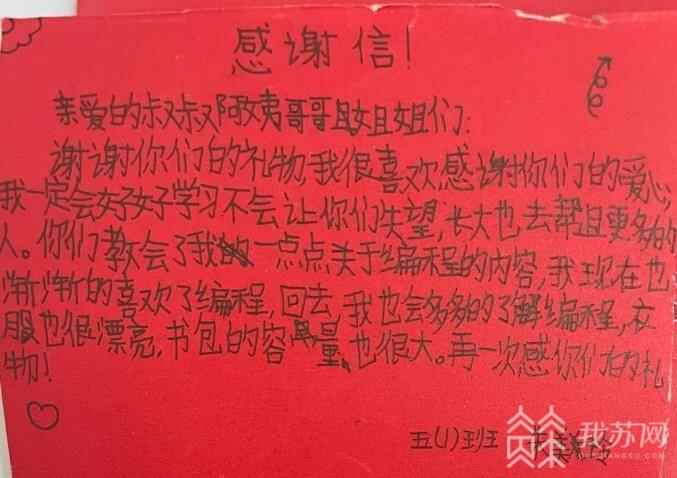 感谢信!
亲爱的叔叔阿姨哥哥姐姐们:
谢谢你们的礼物,我很喜欢感谢你们的爱心,
我一定会好好学习不会让你们失望,长大也去帮且更多的
人。你们教会了我一点点关于编程的内容,我现在也
渐渐的喜欢了编程,回去,我也会多多的了解编程,衣
服也很漂亮,书包的容量,也很大。再一次感你们的礼
物!
五(1)班
我苏网